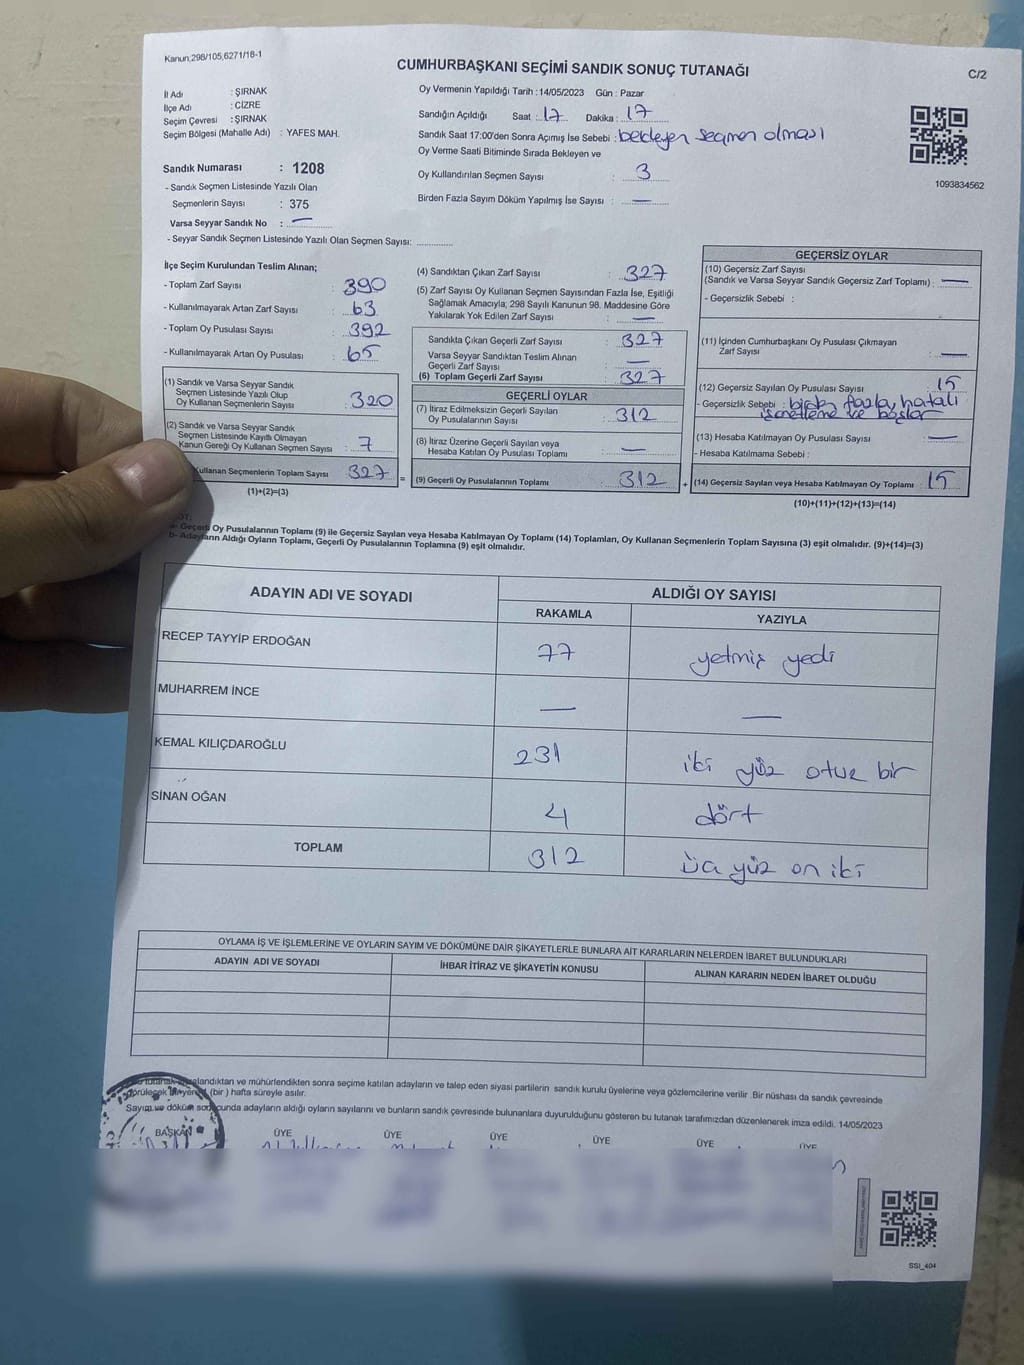 Kanun;298/105,6271/18-1
CUMHURBAŞKANI SEÇİMİ SANDIK SONUÇ TUTANAĞI
C/2
İl Adı : ŞIRNAK
İlçe Adı : CİZRE
Seçim Çevresi : ŞIRNAK
Seçim Bölgesi (Mahalle Adı) : YAFES MAH.
Sandık Numarası : 1208
- Sandık Seçmen Listesinde Yazılı Olan
Seçmenlerin Sayısı : 375
Varsa Seyyar Sandık No : —
- Seyyar Sandık Seçmen Listesinde Yazılı Olan Seçmen Sayısı: ............
Oy Vermenin Yapıldığı Tarih : 14/05/2023 Gün : Pazar
Sandığın Açıldığı Saat : 17 Dakika : 17
Sandık Saat 17:00'den Sonra Açımış İse Sebebi : bekleyen seçmen olması
Oy Verme Saati Bitiminde Sırada Bekleyen ve
Oy Kullandırılan Seçmen Sayısı : 3
Birden Fazla Sayım Döküm Yapılmış İse Sayısı : —
1093834562
İlçe Seçim Kurulundan Teslim Alınan;
- Toplam Zarf Sayısı : 390
- Kullanılmayarak Artan Zarf Sayısı : 63
- Toplam Oy Pusulası Sayısı : 392
- Kullanılmayarak Artan Oy Pusulası : 65
(1) Sandık ve Varsa Seyyar Sandık
Seçmen Listesinde Yazılı Olup
Oy Kullanan Seçmenlerin Sayısı : 320
(2) Sandık ve Varsa Seyyar Sandık
Seçmen Listesinde Kayıtlı Olmayan
Kanun Gereği Oy Kullanan Seçmen Sayısı : 7
Kullanan Seçmenlerin Toplam Sayısı 327 =
(1)+(2)=(3)
(4) Sandıktan Çıkan Zarf Sayısı : 327
(5) Zarf Sayısı Oy Kullanan Seçmen Sayısından Fazla İse, Eşitliği
Sağlamak Amacıyla; 298 Sayılı Kanunun 98. Maddesine Göre
Yakılarak Yok Edilen Zarf Sayısı : —
Sandıkta Çıkan Geçerli Zarf Sayısı : 327
Varsa Seyyar Sandıktan Teslim Alınan
Geçerli Zarf Sayısı : —
(6) Toplam Geçerli Zarf Sayısı : 327
GEÇERLİ OYLAR
(7) İtiraz Edilmeksizin Geçerli Sayılan
Oy Pusulalarının Sayısı : 312
(8) İtiraz Üzerine Geçerli Sayılan veya
Hesaba Katılan Oy Pusulası Toplamı : —
(9) Geçerli Oy Pusulalarının Toplamı : 312 +
GEÇERSİZ OYLAR
(10) Geçersiz Zarf Sayısı
(Sandık ve Varsa Seyyar Sandık Geçersiz Zarf Toplamı) : —
- Geçersizlik Sebebi :
(11) İçinden Cumhurbaşkanı Oy Pusulası Çıkmayan
Zarf Sayısı : —
(12) Geçersiz Sayılan Oy Pusulası Sayısı : 15
- Geçersizlik Sebebi : fazla, hatalı
işaretleme ve boşlar
(13) Hesaba Katılmayan Oy Pusulası Sayısı : —
- Hesaba Katılmama Sebebi :
(14) Geçersiz Sayılan veya Hesaba Katılmayan Oy Toplamı : 15
(10)+(11)+(12)+(13)=(14)
a- Geçerli Oy Pusulalarının Toplamı (9) ile Geçersiz Sayılan veya Hesaba Katılmayan Oy Toplamı (14) Toplamları, Oy Kullanan Seçmenlerin Toplam Sayısına (3) eşit olmalıdır. (9)+(14)=(3)
b- Adayların Aldığı Oyların Toplamı, Geçerli Oy Pusulalarının Toplamına (9) eşit olmalıdır.
ADAYIN ADI VE SOYADI
ALDIĞI OY SAYISI
RAKAMLA YAZIYLA
RECEP TAYYİP ERDOĞAN 77 yetmiş yedi
MUHARREM İNCE — —
KEMAL KILIÇDAROĞLU 231 iki yüz otuz bir
SİNAN OĞAN 4 dört
TOPLAM 312 üç yüz on iki
OYLAMA İŞ VE İŞLEMLERİNE VE OYLARIN SAYIM VE DÖKÜMÜNE DAİR ŞİKAYETLERLE BUNLARA AİT KARARLARIN NELERDEN İBARET BULUNDUKLARI
ADAYIN ADI VE SOYADI İHBAR İTİRAZ VE ŞİKAYETİN KONUSU ALINAN KARARIN NEDEN İBARET OLDUĞU
tutanak sonra seçime katılan adayların ve talep eden siyasi partilerin sandık kurulu üyelerine veya gözlemcilerine verilir .Bir nüshası da sandık çevresinde
(bir) hafta süreyle asılır.
Sayım ve döküm adayların aldığı oyların sayılarını ve bunların sandık çevresinde bulunanlara duyurulduğunu gösteren bu tutanak tarafımızdan düzenlenerek imza edildi. 14/05/2023
BAŞKAN ÜYE ÜYE ÜYE ÜYE ÜYE ÜYE
SSI_404